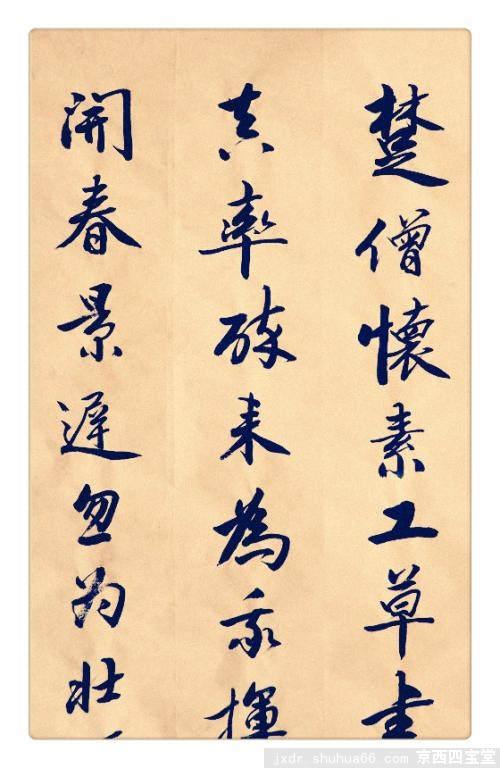 楚僧懷素工草書
真率醉来為我揮
開春景遲忽为壯
jxdr.shuhua66.com 京西四宝堂